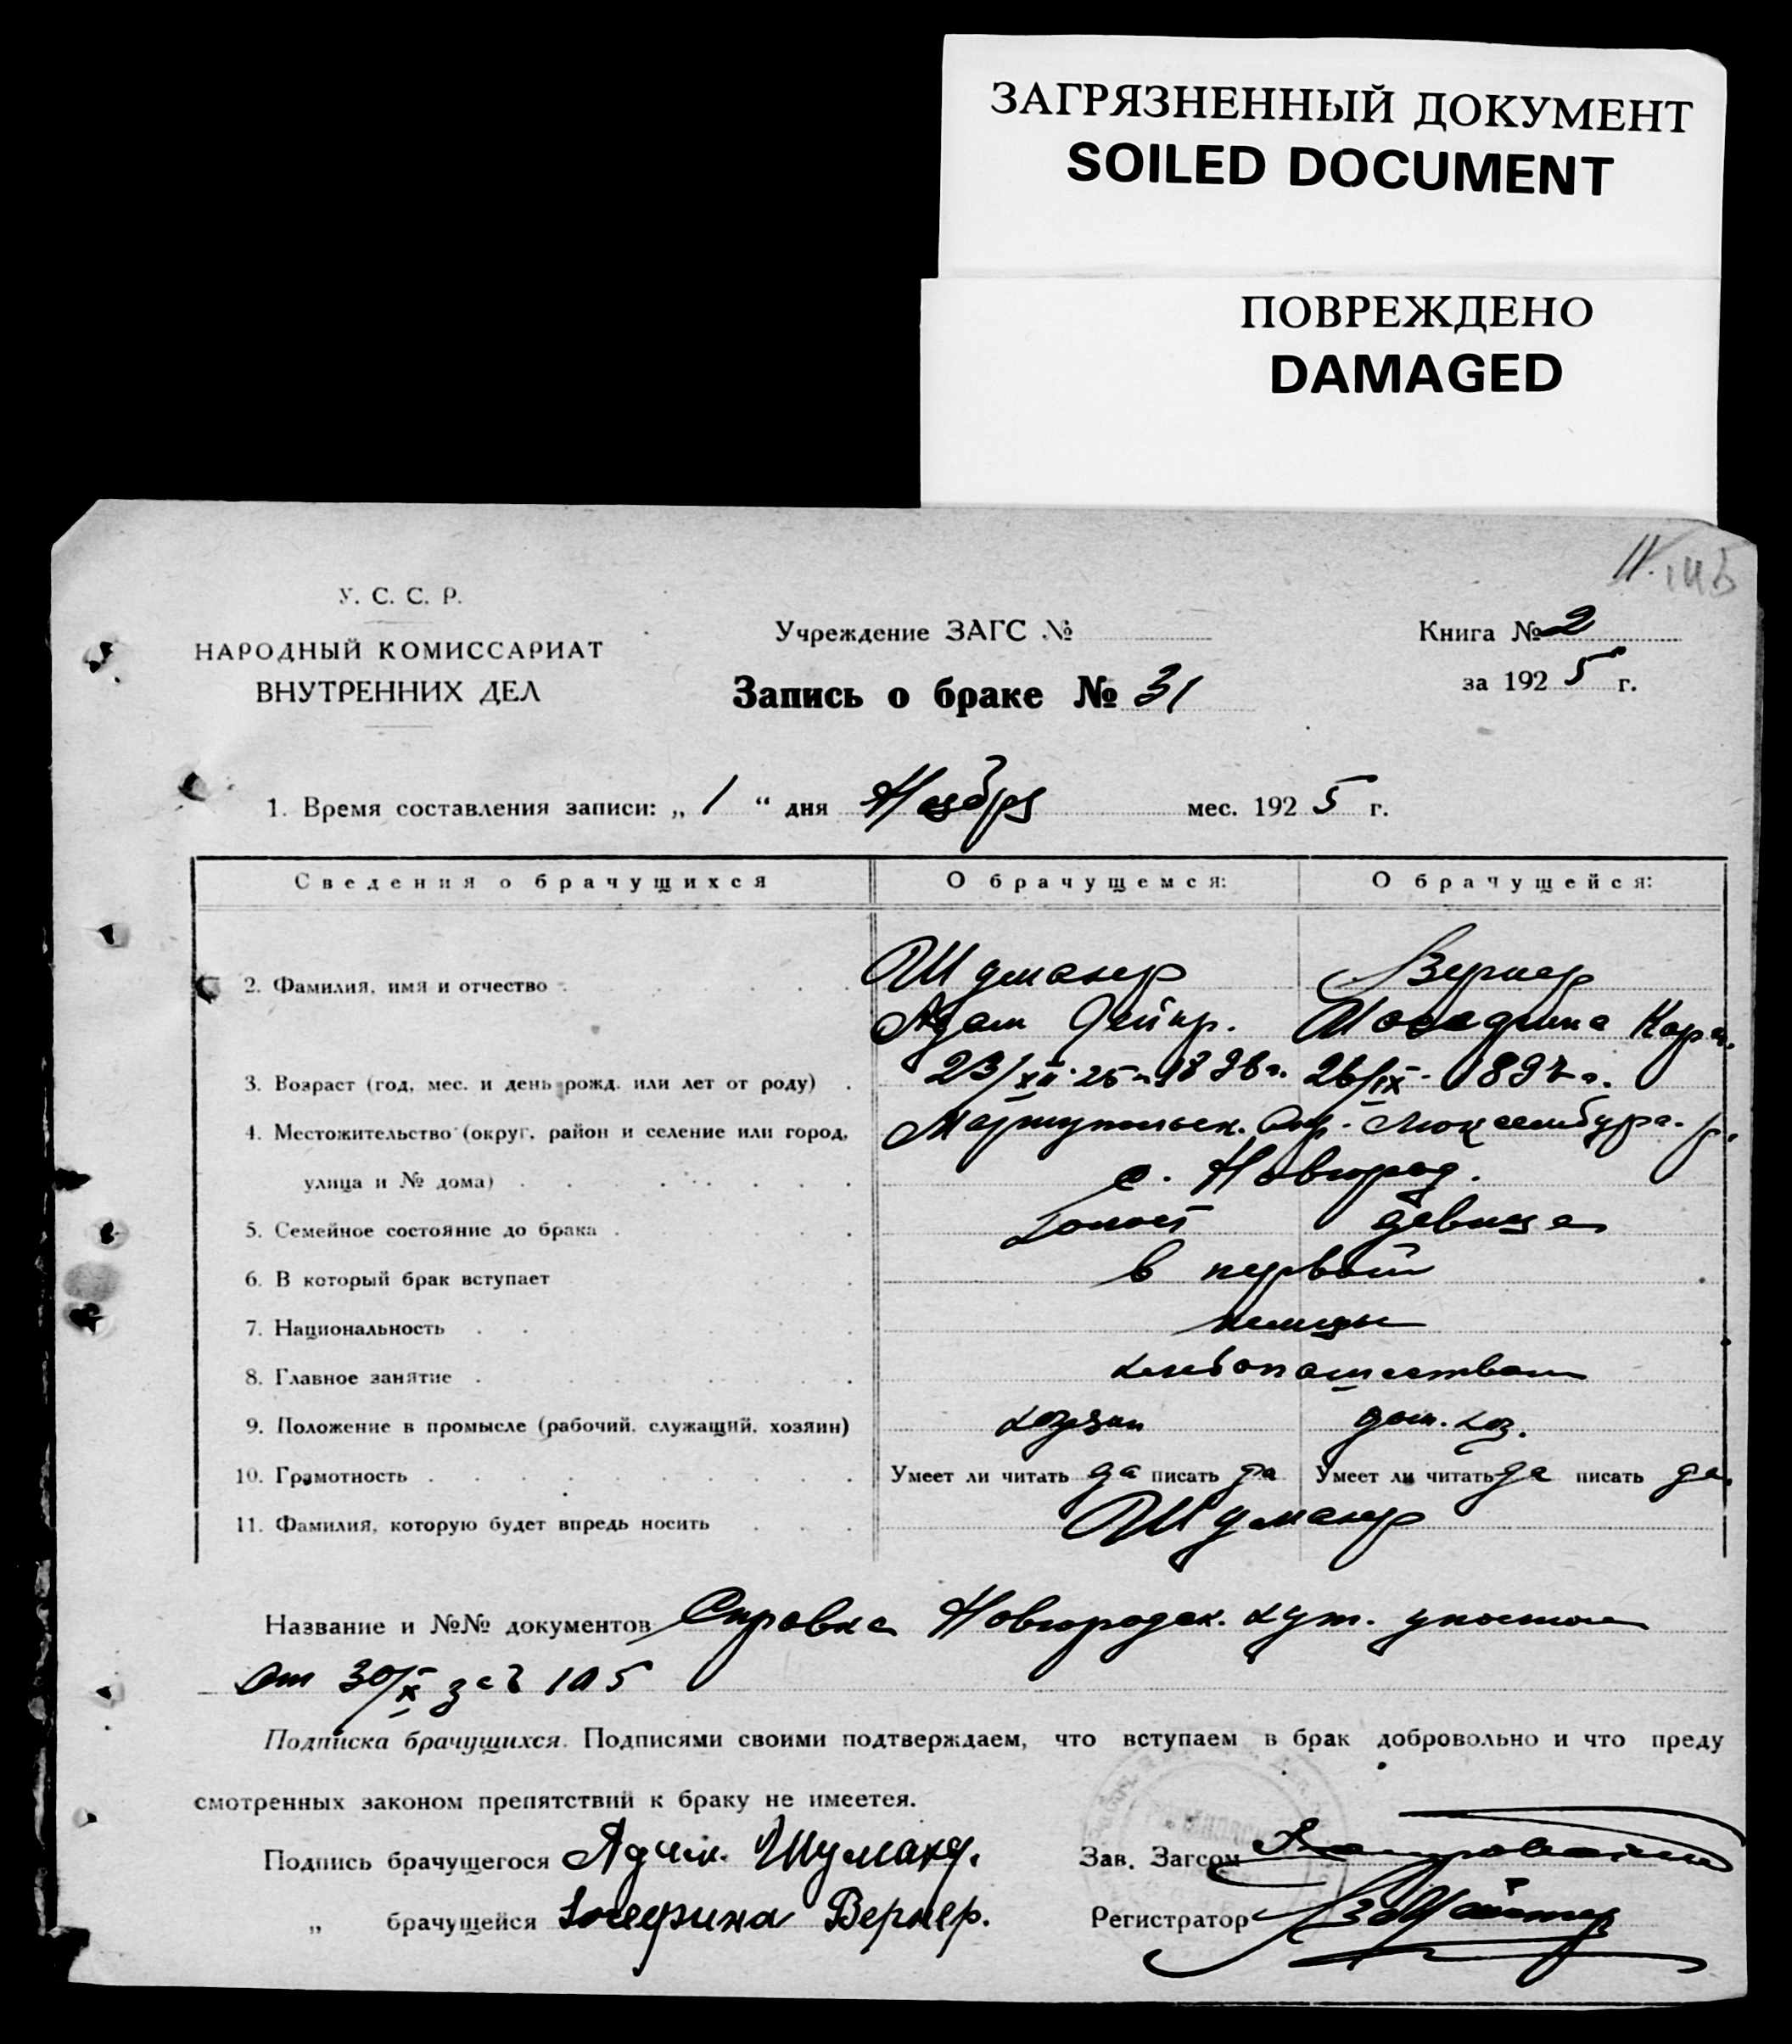 ЗАГРЯЗНЕННЫЙ ДОКУМЕНТ
SOILED DOCUMENT
ПОВРЕЖДЕНО
DAMAGED
11.
У. С. С. Р.
НАРОДНЫЙ КОМИССАРИАТ
ВНУТРЕННИХ ДЕЛ
Учреждение ЗАГС №
Запись о браке № 31
Книга № 2
за 1925 г.
1. Время составления записи: „ 1 “ дня Ноября мес. 1925 г.
Сведения о брачущихся О брачущемся: О брачущейся:
Шумахер Вернер
2. Фамилия, имя и отчество
Адам Гейнр. Иосефина Карл.
3. Возраст (год, мес. и день рожд. или лет от роду) 23/XII 26/IX - 1897 г.
4. Местожительство (округ, район и селение или город, Мариупольск. Окр. Люксембург. р.
улица и № дома) с. Новгород.
5. Семейное состояние до брака холост девица
6. В который брак вступает в первый
7. Национальность немцы
8. Главное занятие хлебопашеством
9. Положение в промысле (рабочий, служащий, хозяин) хозяин дом. хоз.
10. Грамотность Умеет ли читать да писать да Умеет ли читать да писать да.
11. Фамилия, которую будет впредь носить Шумахер
Название и №№ документов Справка Новгородск. хут.
от 30/X за № 105
Подписка брачущихся. Подписями своими подтверждаем, что вступаем в брак добровольно и что преду
смотренных законом препятствий к браку не имеется.
Подпись брачущегося Адам. Шумахер.
Зав. Загсом
„ брачущейся Іосефина Вернер.
Регистратор